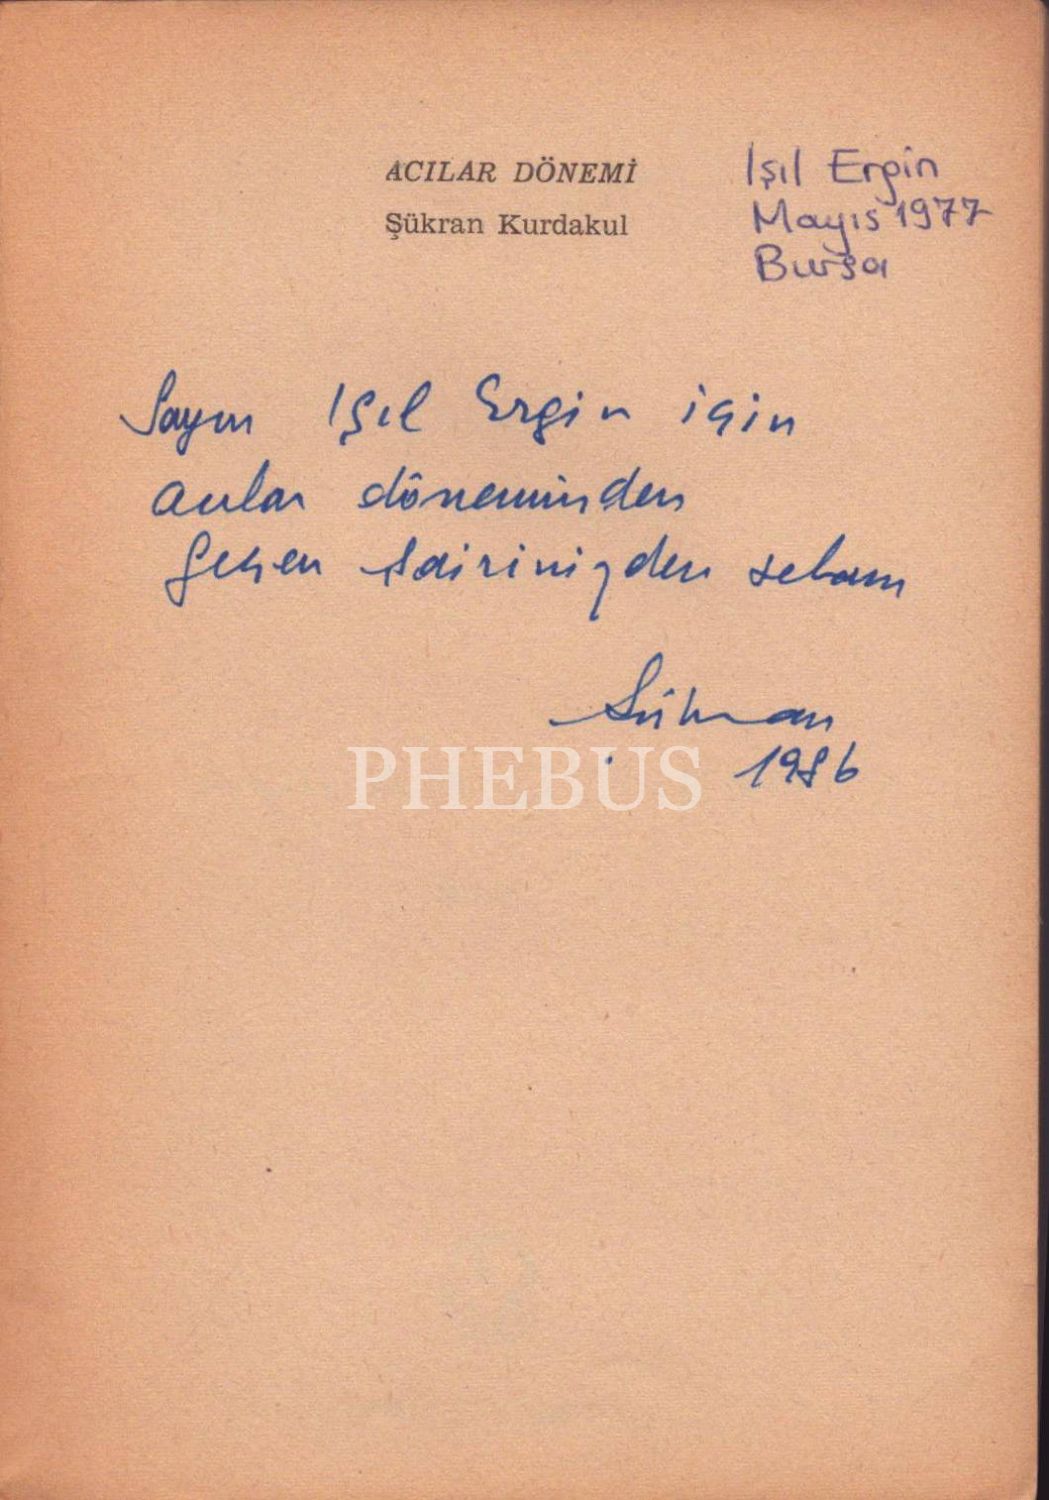 ACILAR DÖNEMİ
Şükran Kurdakul
Işıl Ergin
Mayıs 1977
Bursa
Sayın Işıl Ergin için
acılar döneminden
geçen şairinizden selam
Şükran
1986
PHEBUS